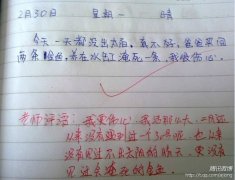 2月30日 星期一 晴
今天一天都没出太阳，真不好，爸爸买回
两条金鱼，养在水缸里淹死一条，我很伤心。
老师评语：我更伤心！我活那么大，二月还
从来没有碰到过一个30号呢，也从来
没有见过不出太阳的晴天，更没有
见过会淹死的金鱼
腾讯微博